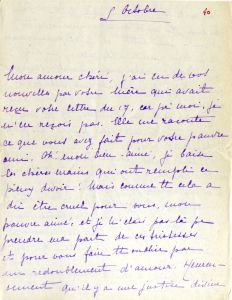 5 Octobre
40
Mon amour chéri, j'ai eu de vos
nouvelles par votre mère qui avait
reçu votre lettre du 17, car moi, je
n'en reçois pas. Elle me raconte
ce que vous avez fait pour votre pauvre
ami. Oh! mon bien-aimé, je baise
les chères mains qui ont rempli ce
pieux devoir! Mais comme tout cela a
dû être cruel pour vous, mon
pauvre aimé, et je n'étais pas là pr
prendre ma part de ces tristesses
et pour vous faire oublier par
un redoublement d'amour. Heureu-
sement qu'il y a une justice divine